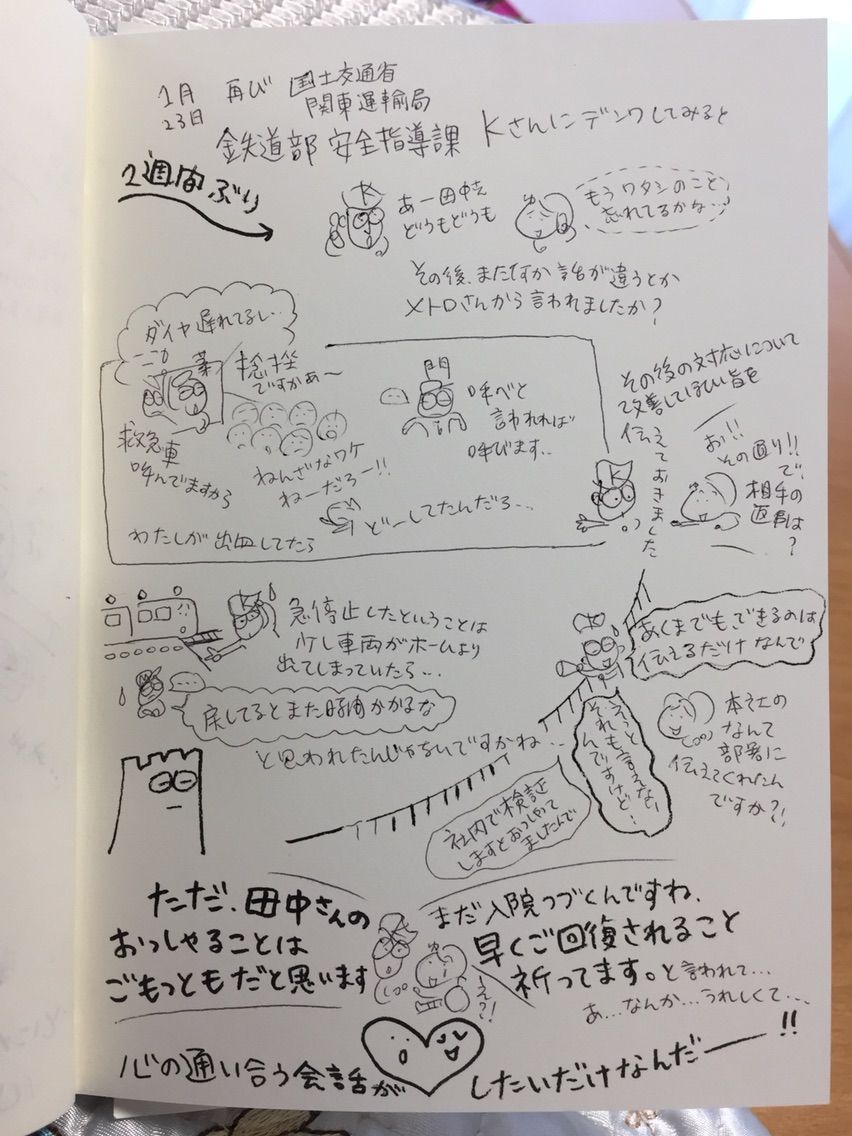 1月
23日
再び 国土交通省
関東運輸局
鉄道部 安全指導課 Kさんにデンワしてみると
2週間ぶり
K
あー田中さん
どうもどうも
もうワタシのこと
忘れてるかな…
その後、またなんか話が違うとか
メトロさんから言われましたか?
ダイヤ遅れてるし…
捻挫
ですかぁ〜
救急車
呼んでますから
ねんざなワケ
ねーだろー!!
門
呼べと
言われれば
呼びます…
わたしが出血してたら
どーしてたんだろ…
その後の対応について
改善してほしい旨を
伝えておきました
K
お!!
その通り!!
で、
相手の
返事は?
急停止したということは
少し車両がホームより
出てしまっていたら…
戻してるとまた時間かかるな
と思われたんじゃないですかね…
あくまでも、できるのは
伝えるだけなんで
本社の
なんて
部署に
伝えてくれたん
ですか?!
えっと
それも言えない
んですけど!
社内で検証
しますとおっしゃって
ましたんで
ただ、田中さんの
おっしゃることは
ごもっともだと思います
え?!
まだ入院つづくんですね、
早くご回復されること
祈ってます。と言われて…
あ…なんか…うれしくて…
心の通い合う会話が
したいだけなんだー!!